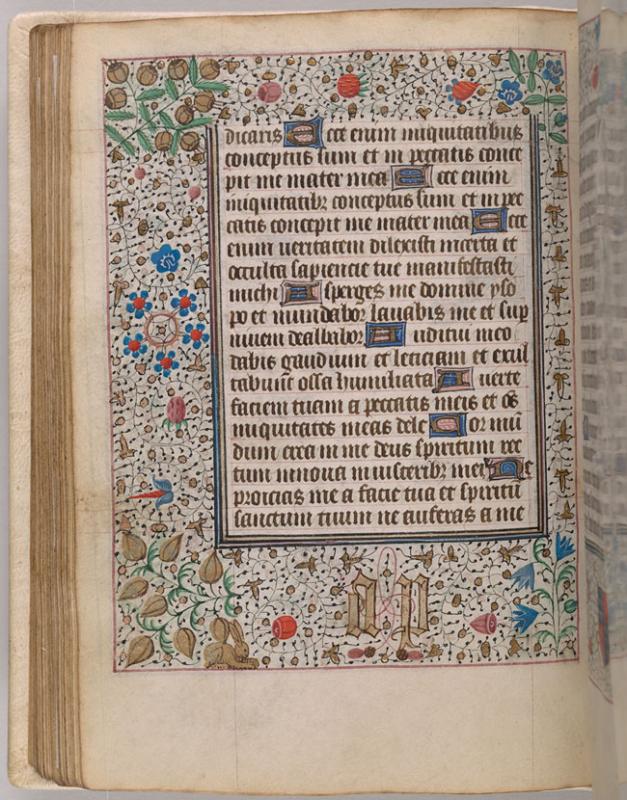 dicaris Ecce enim iniquitatibus
conceptus sum et in peccatis conce
pit me mater mea Ecce enim
iniquitatibꝫ conceptus sum et in pec
catis concepit me mater mea Ecce
enim ueritatem dilexisti incerta et
occulta sapiencie tue manifestasti
michi Asperges me domine yso
po et mundaboꝛ lauabis me et sup
niuem dealbaboꝛ Auditui meo
dabis gaudium et leticiam et exul
tabunt ossa humiliata Auerte
faciem tuam a peccatis meis et oēs
iniquitates meas dele Coꝛ mū
dum crea in me deus spiritum rec
tum innoua in uisceribꝫ meis Ne
proicias me a facie tua et spiritū
sanctum tuum ne auferas a me